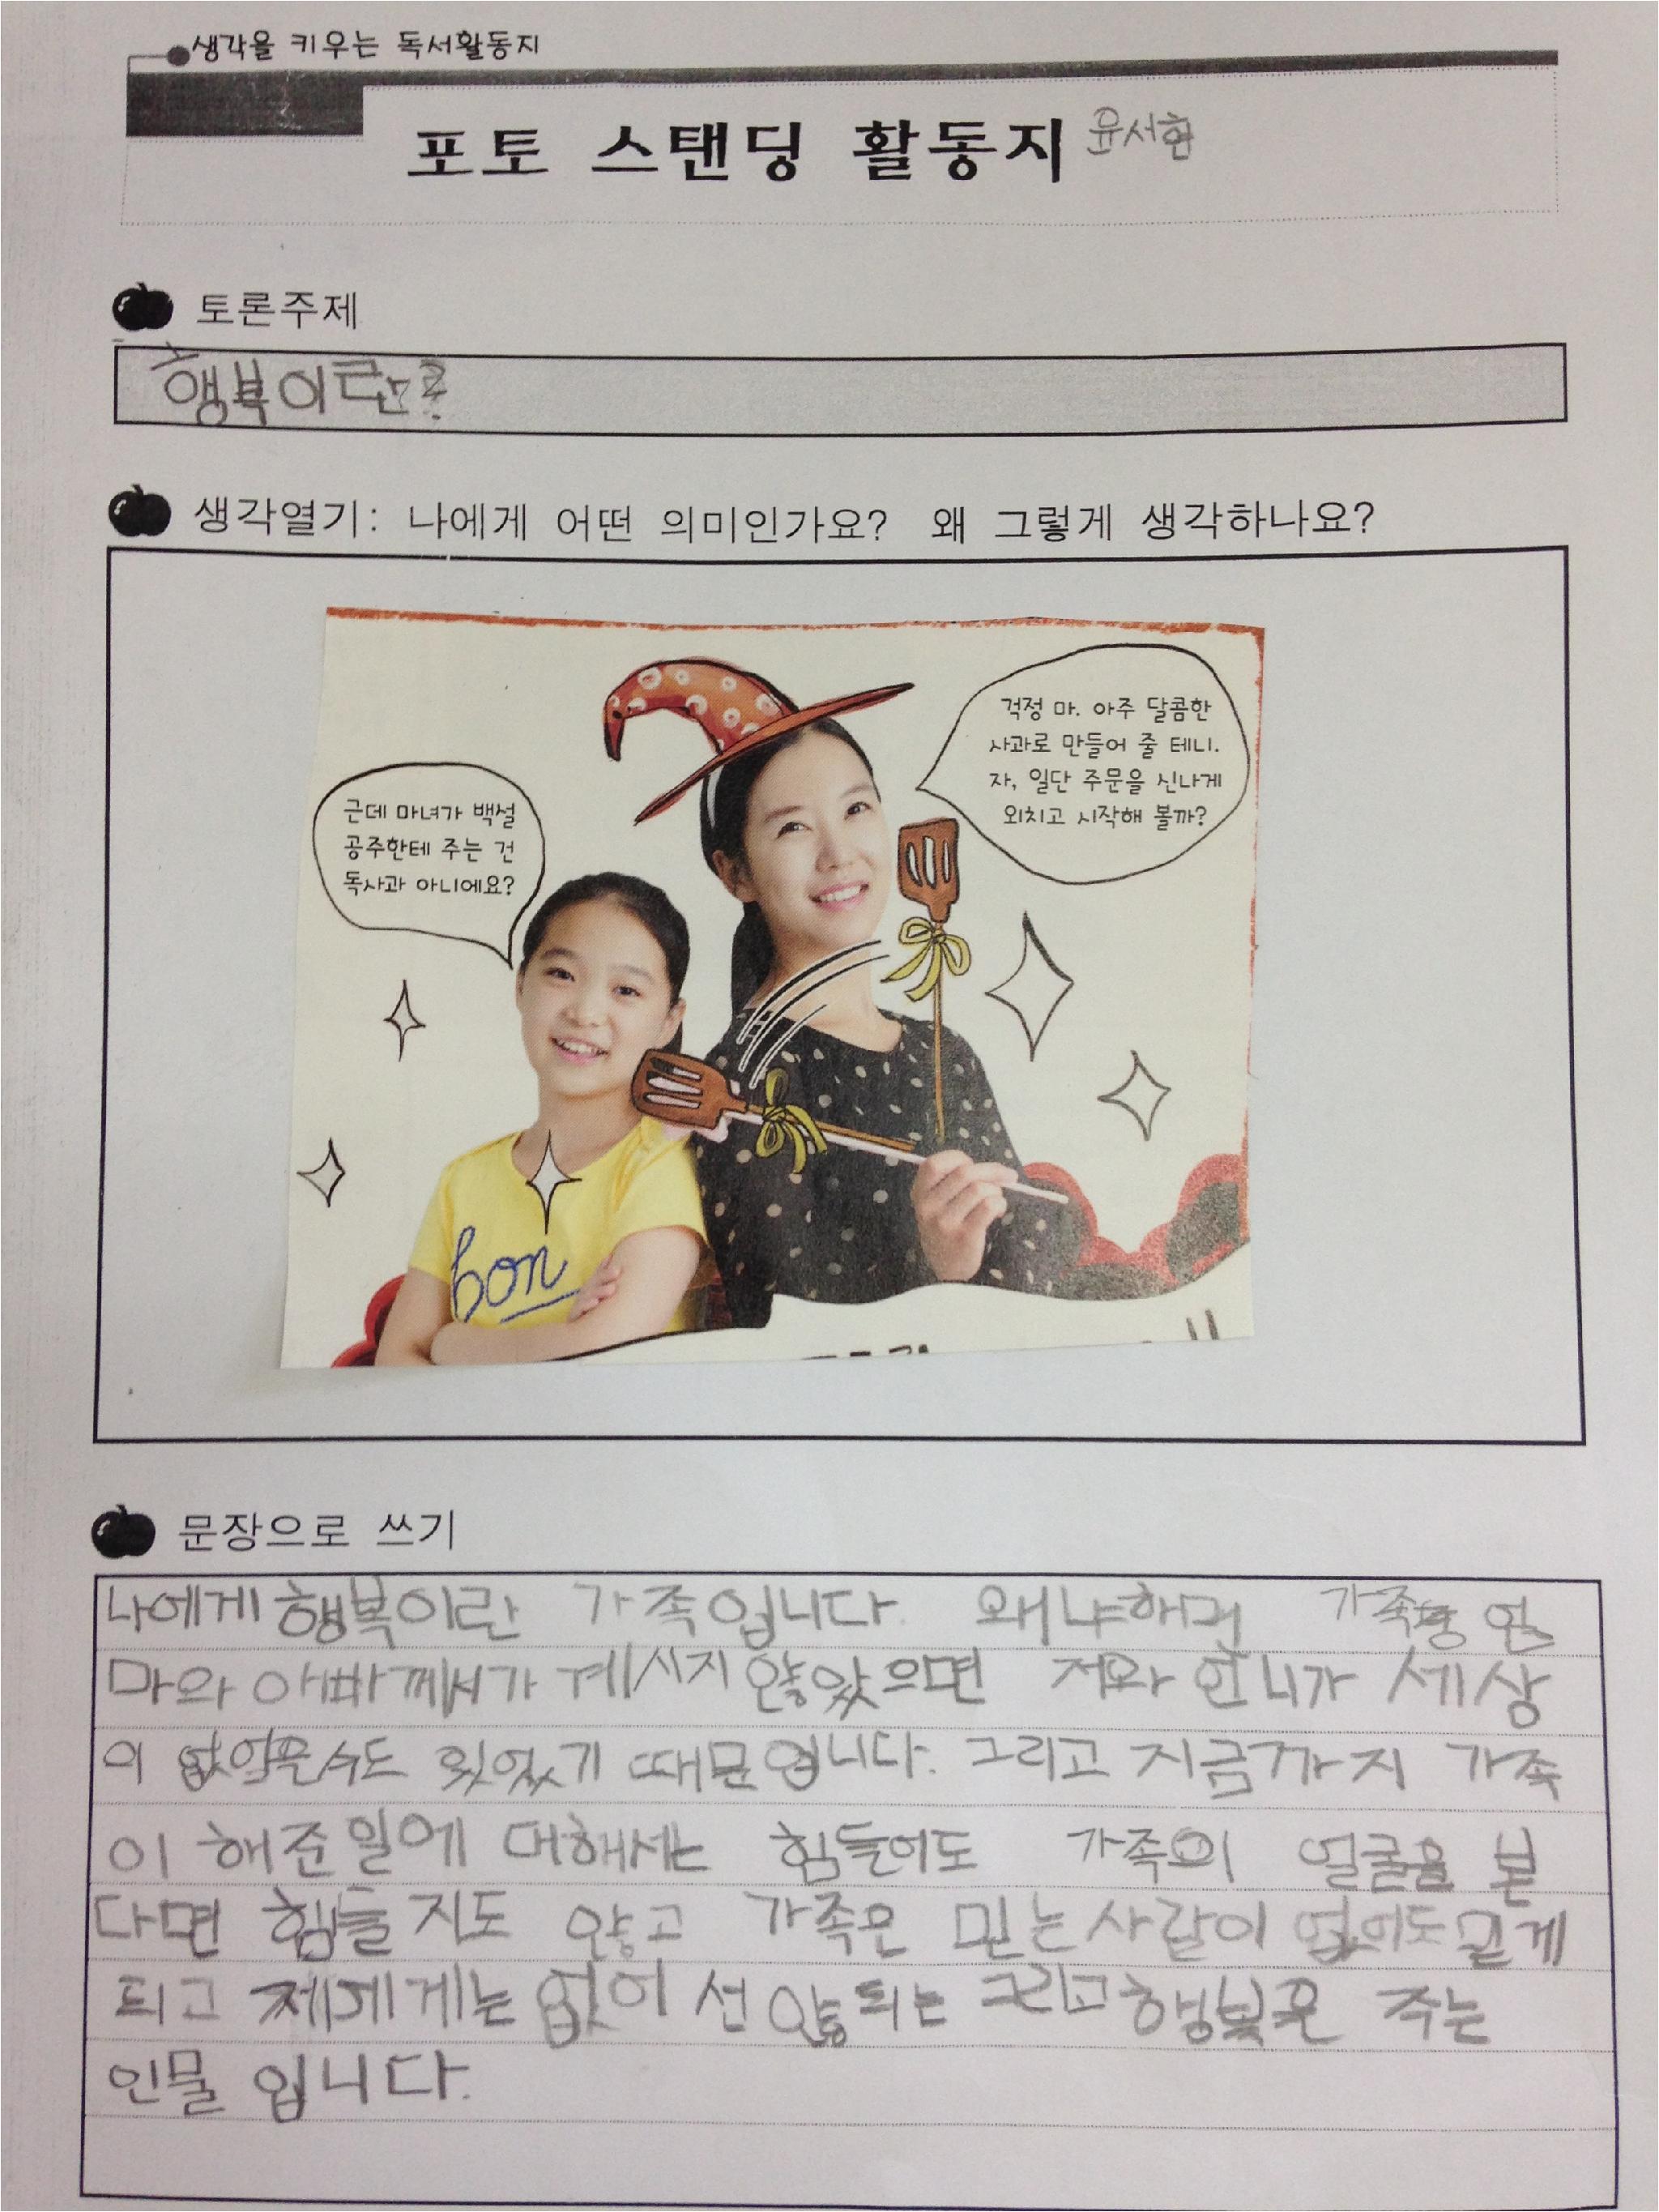 생각을 키우는 독서활동지
포토 스탠딩 활동지 윤서현
토론주제
행복이란?
생각열기: 나에게 어떤 의미인가요? 왜 그렇게 생각하나요?
걱정 마. 아주 달콤한
사과로 만들어 줄 테니.
자, 일단 주문을 신나게
외치고 시작해 볼까?
근데 마녀가 백설
공주한테 주는 건
독사과 아니에요?
bon
문장으로 쓰기
나에게 행복이란 가족입니다. 왜냐하며 가족중 엄
마와 아빠께서가 계시지 않았으면 저와 언니가 세상
의 없었을수도 있었기 때문입니다. 그리고 지금까지 가족
이 해준 일에 대해서는 힘들어도 가족의 얼굴을 본
다면 힘들지도 않고 가족은 믿는 사람이 없어도 믿게
되고 제에게는 없어선 않되는 그리고 행복은 주는
인물 입니다.